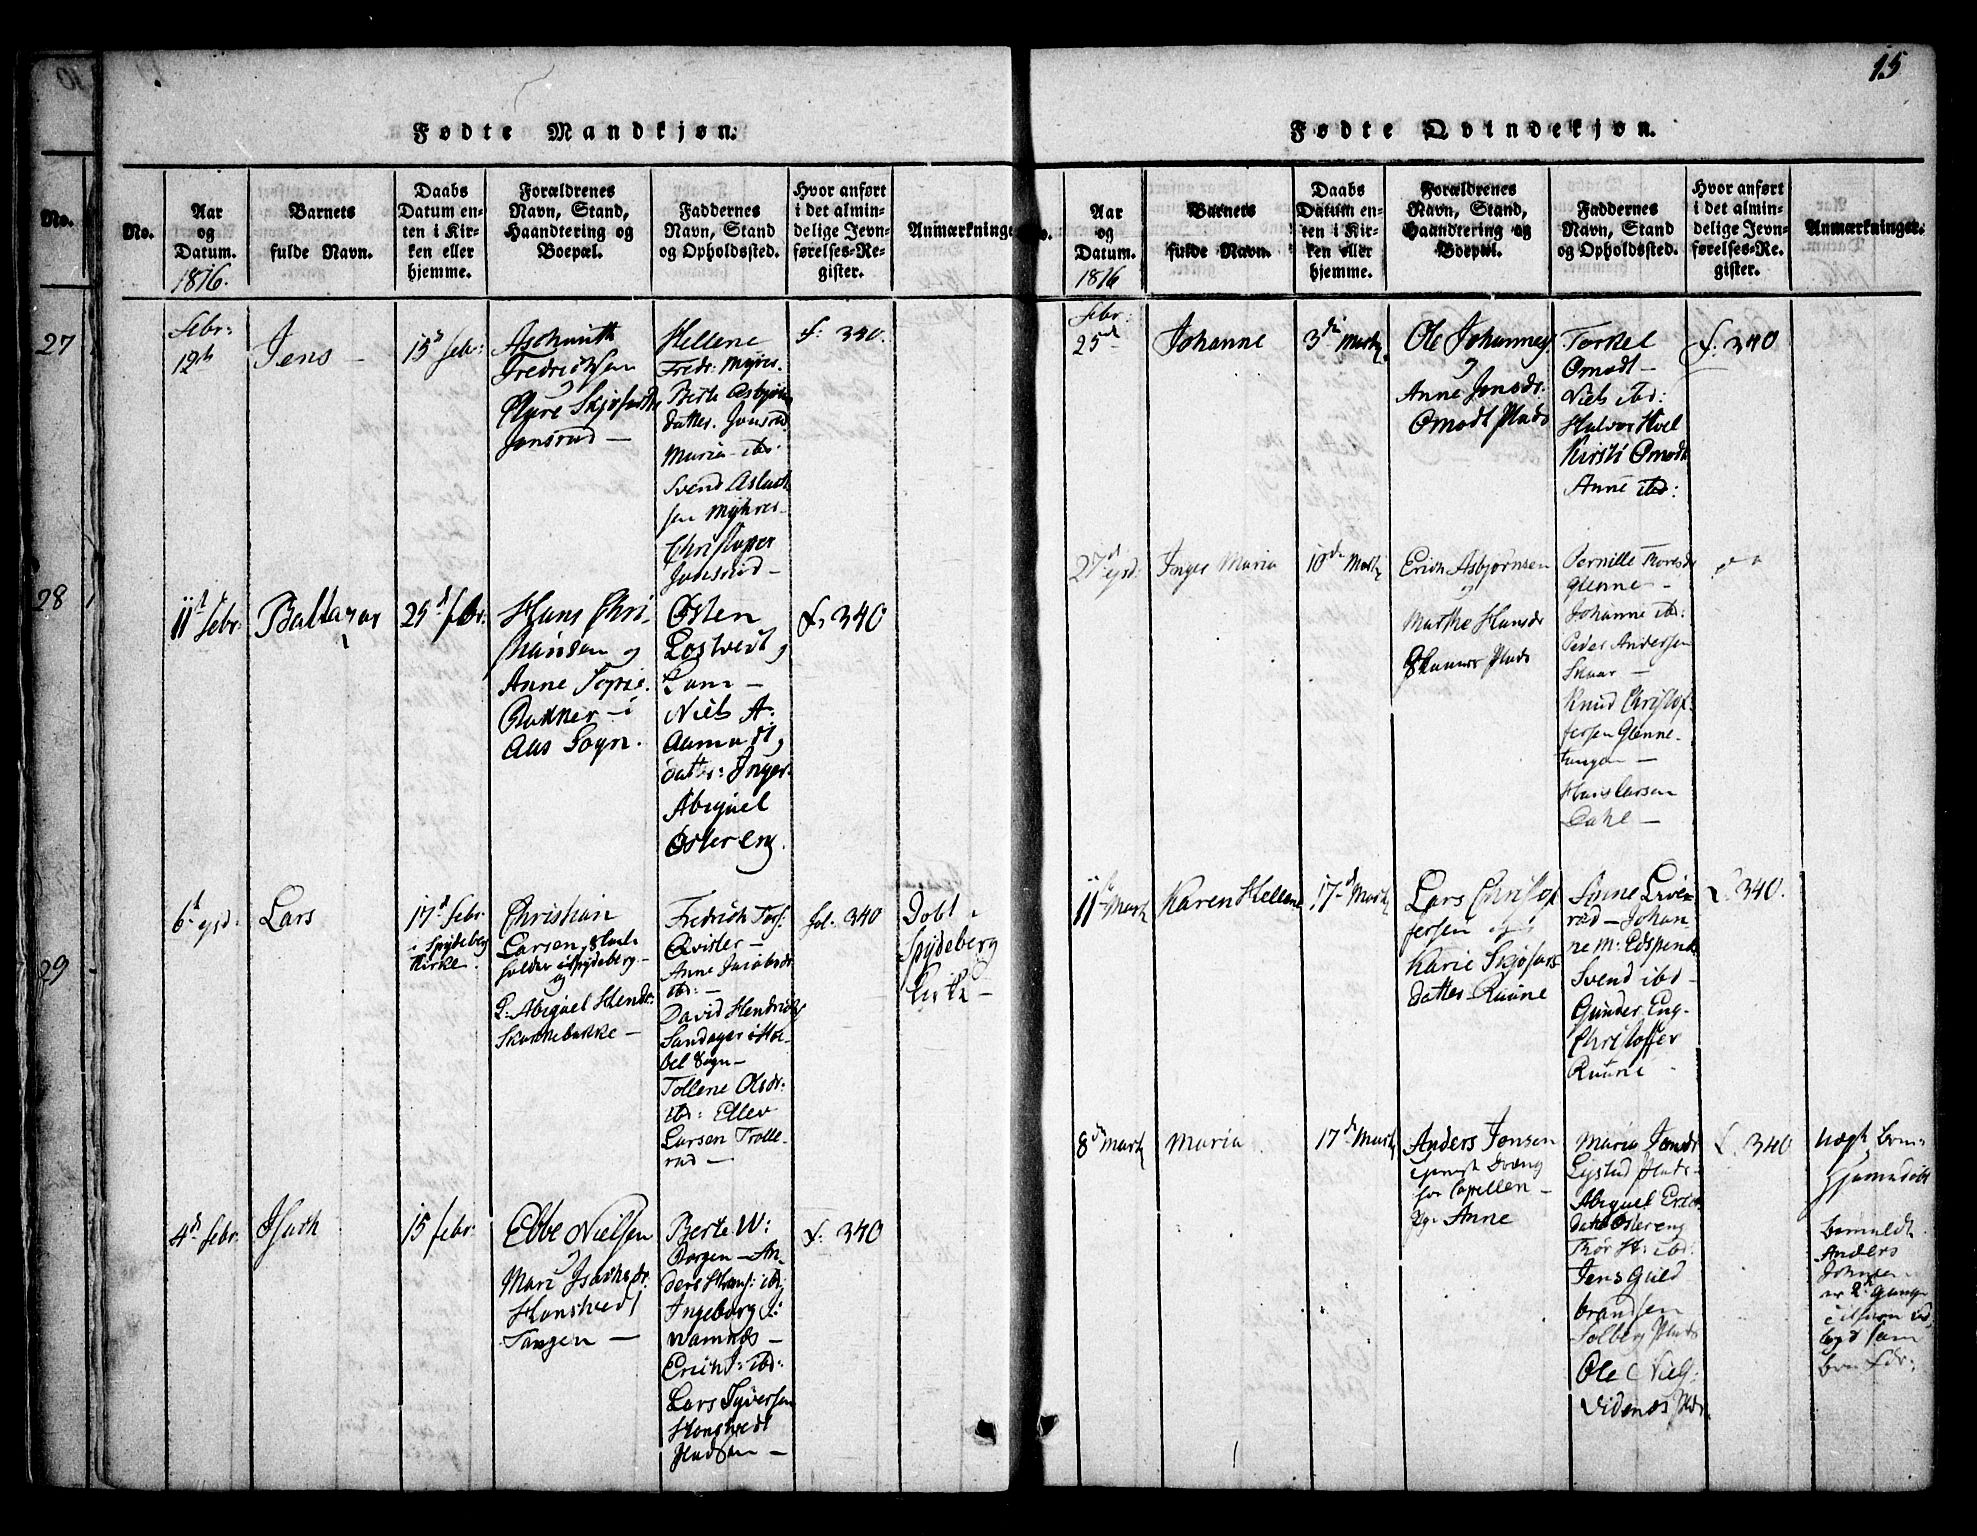 15
Fødte Mandkjøn.
No.
No.
Aar
og
Datum.
1816.
Barnets
fulde Navn.
Daabs
Datum en-
ten i Kir-
ken eller
hjemme.
Forældrenes
Navn, Stand,
Haandtering og
Boepæl.
Faddernes
Navn, Stand
og Opholdssted.
Hvor anført
i det almin-
delige Jevn-
førelses-Re-
gister.
Anmærkninge
27
28
29
Febr:
12th
Jens –
15d Febr:
Aschmuth
Fredrichsen
Jonsrud –
Hellene
Fredr: Myrer.
Berte Asbjørns
datter. Jonsrud
Maria ibd:
Svend Aslach
sen Myhrer
Christopher
Jonsrud –
f: 340.
11t Febr:
Baltazar
25d febr:
Hans Chri-
stiansen og
Anne Sophie
Bakker – i
Aas Sogn.
Østen
Lostvedt
Lam –
Niels A:
Aamodt
datter: Inger
Abiguel
Østereng
f. 340
6t ejsd:
Lars
17d Febr
i Spydeberg
Kirke.
Christian
Larsen
holder i Spydeberg –
og
P: Abiguel Hendr:
Skonnebakke –
Fredrich Torf:
Qvisler –
Anne Jacobsdr
ibd: –
David Hendrichs
Sandager i Hoe-
bel Sogn –
Tollene Olsdr:
ibd: Ellev
Larsen Trolle-
rud –
fol. 340
Dobt i
Spydeberg
Kirke –
4d Febr:
Isach
15 febr
Ebbe Nielsen
og
Mari Isachsdr.
Honsvedt
Tangen –
Berte W:
Borgen – An-
ders Hans: ibd:
Ingeborg I:
Wamnæs –
Erich I: ibd:
Lars Syversen
Honsvedt
Pladsen –
f. 340
Fødte Qvindekjøn.
Aar
og
Datum.
1816
Barnets
fulde Navn.
Daabs
Datum en-
ten i Kir-
ken eller
hjemme.
Forældrenes
Navn, Stand,
Haandtering og
Boepæl.
Faddernes
Navn, Stand
og Opholdssted.
Hvor anført
i det almin-
delige Jevn-
førelses-Re-
gister.
Anmærkninger.
Febr:
25d
Johanne
3die Martz.
Ole Johannes.
og
Anne Jonsdr.
Omodt Plads
Torkel
Omodt –
Niels ibd:
Halvor Hvel
Kirsti Omodt
Anne ibd:
f. 340
27d ejsd:
Inger Maria
10de Martz
Erich Asbjørnsen
og
Marthe Hansdr
Skaarer Plads
Pernille Thoresdr
Glenne –
Johanne ibd:
Peder Andersen
Skaar –
Knud Christof-
fersen Glenne-
tangen –
Hans Larsen
Dahl –
11te Martz
Karen Hellene
17d Martz
Lars Christof
fersen og
Karie Skjøfars
datter Ruune
Anne Liven
rud – Johan-
ne M: Edspend
Svend ibd –
Gunder Eng –
Christoffer
Ruune –
f. 340.
8de Martz
Maria
17de Martz
Anders Jensen
for Capellen –
Pg. Anne
Maria Jonsdr
Lystad Plads –
Abiguel Erichs
datter Østereng
Thor H: ibd:
Jens Guld
brandsen
Solberg Plads
Ole Niels:
Videnæs Plds.
f. 340
Uægte barn
Anders
Johnsen
er 2den Gang